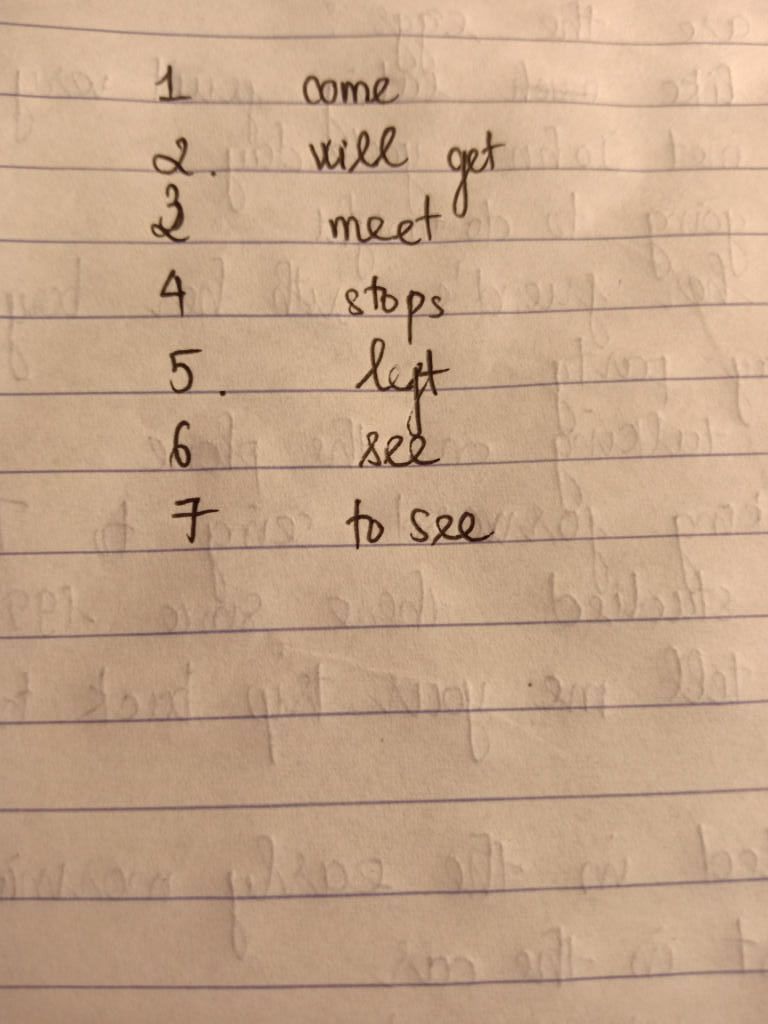 1 come
2. will get
3 meet
4 stops
5. left
6 see
7 to see